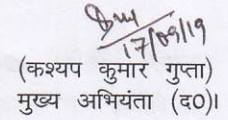 17/09/19
(कश्यप कुमार गुप्ता)
मुख्य अभियंता (द०)।